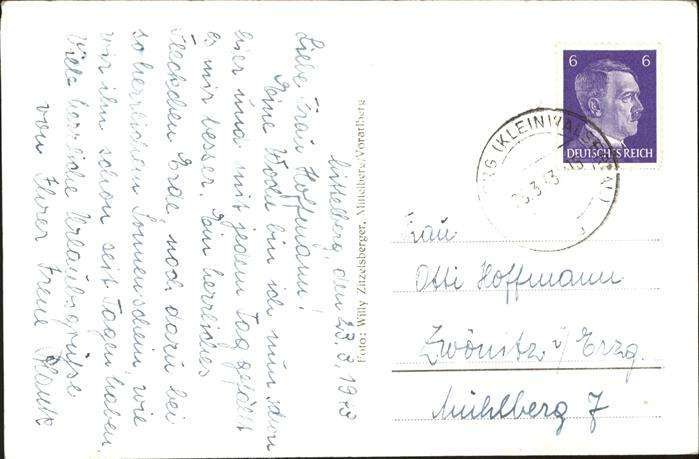 Mittelberg, den 23.3.1943
Liebe Frau Hoffmann!
Eine Woche bin ich nun schon
hier und mit jedem Tag gefällt
es mir besser. Ein herrliches
Fleckchen Erde, noch dazu bei
so herrlichem Sonnenschein wie
wir ihn schon seit Tagen haben.
Viele herzliche Urlaubsgrüße
von Ihrer Irene
Foto: Willy Zitzelsberger, Mittelberg/Vorarlberg
6 6
DEUTSCHES REICH
(KLEINWALSERTAL)
Frau
Otti Hoffmann
Zwönitz i/Erzg.
Mühlberg 7